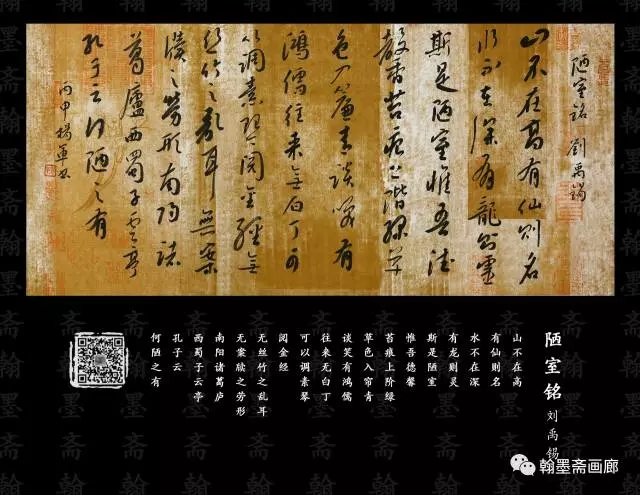 陋室銘 劉禹錫
山不在高有仙则名
水不在深有龍則靈
斯是陋室惟吾德
馨苔痕上階绿草
色入簾青談笑有
鴻儒往来無白丁可
以調素琴閲金經無
丝竹之亂耳無案
牘之勞形南陽諸
葛廬西蜀子雲亭
孔子云何陋之有
丙申楊軍書
陋室铭
刘禹锡
山不在高
有仙则名
水不在深
有龙则灵
斯是陋室
惟吾德馨
苔痕上阶绿
草色入帘青
谈笑有鸿儒
往来无白丁
可以调素琴
阅金经
无丝竹之乱耳
无案牍之劳形
南阳诸葛庐
西蜀子云亭
孔子云
何陋之有
翰墨斋画廊